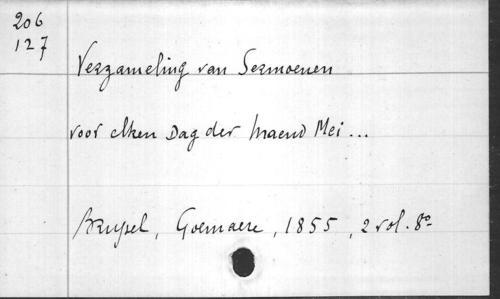 206
127
Verzameling van Sermoenen
voor elken Dag der maend Mei...
Brussel, Goemaere, 1855, 2 vol. 8º